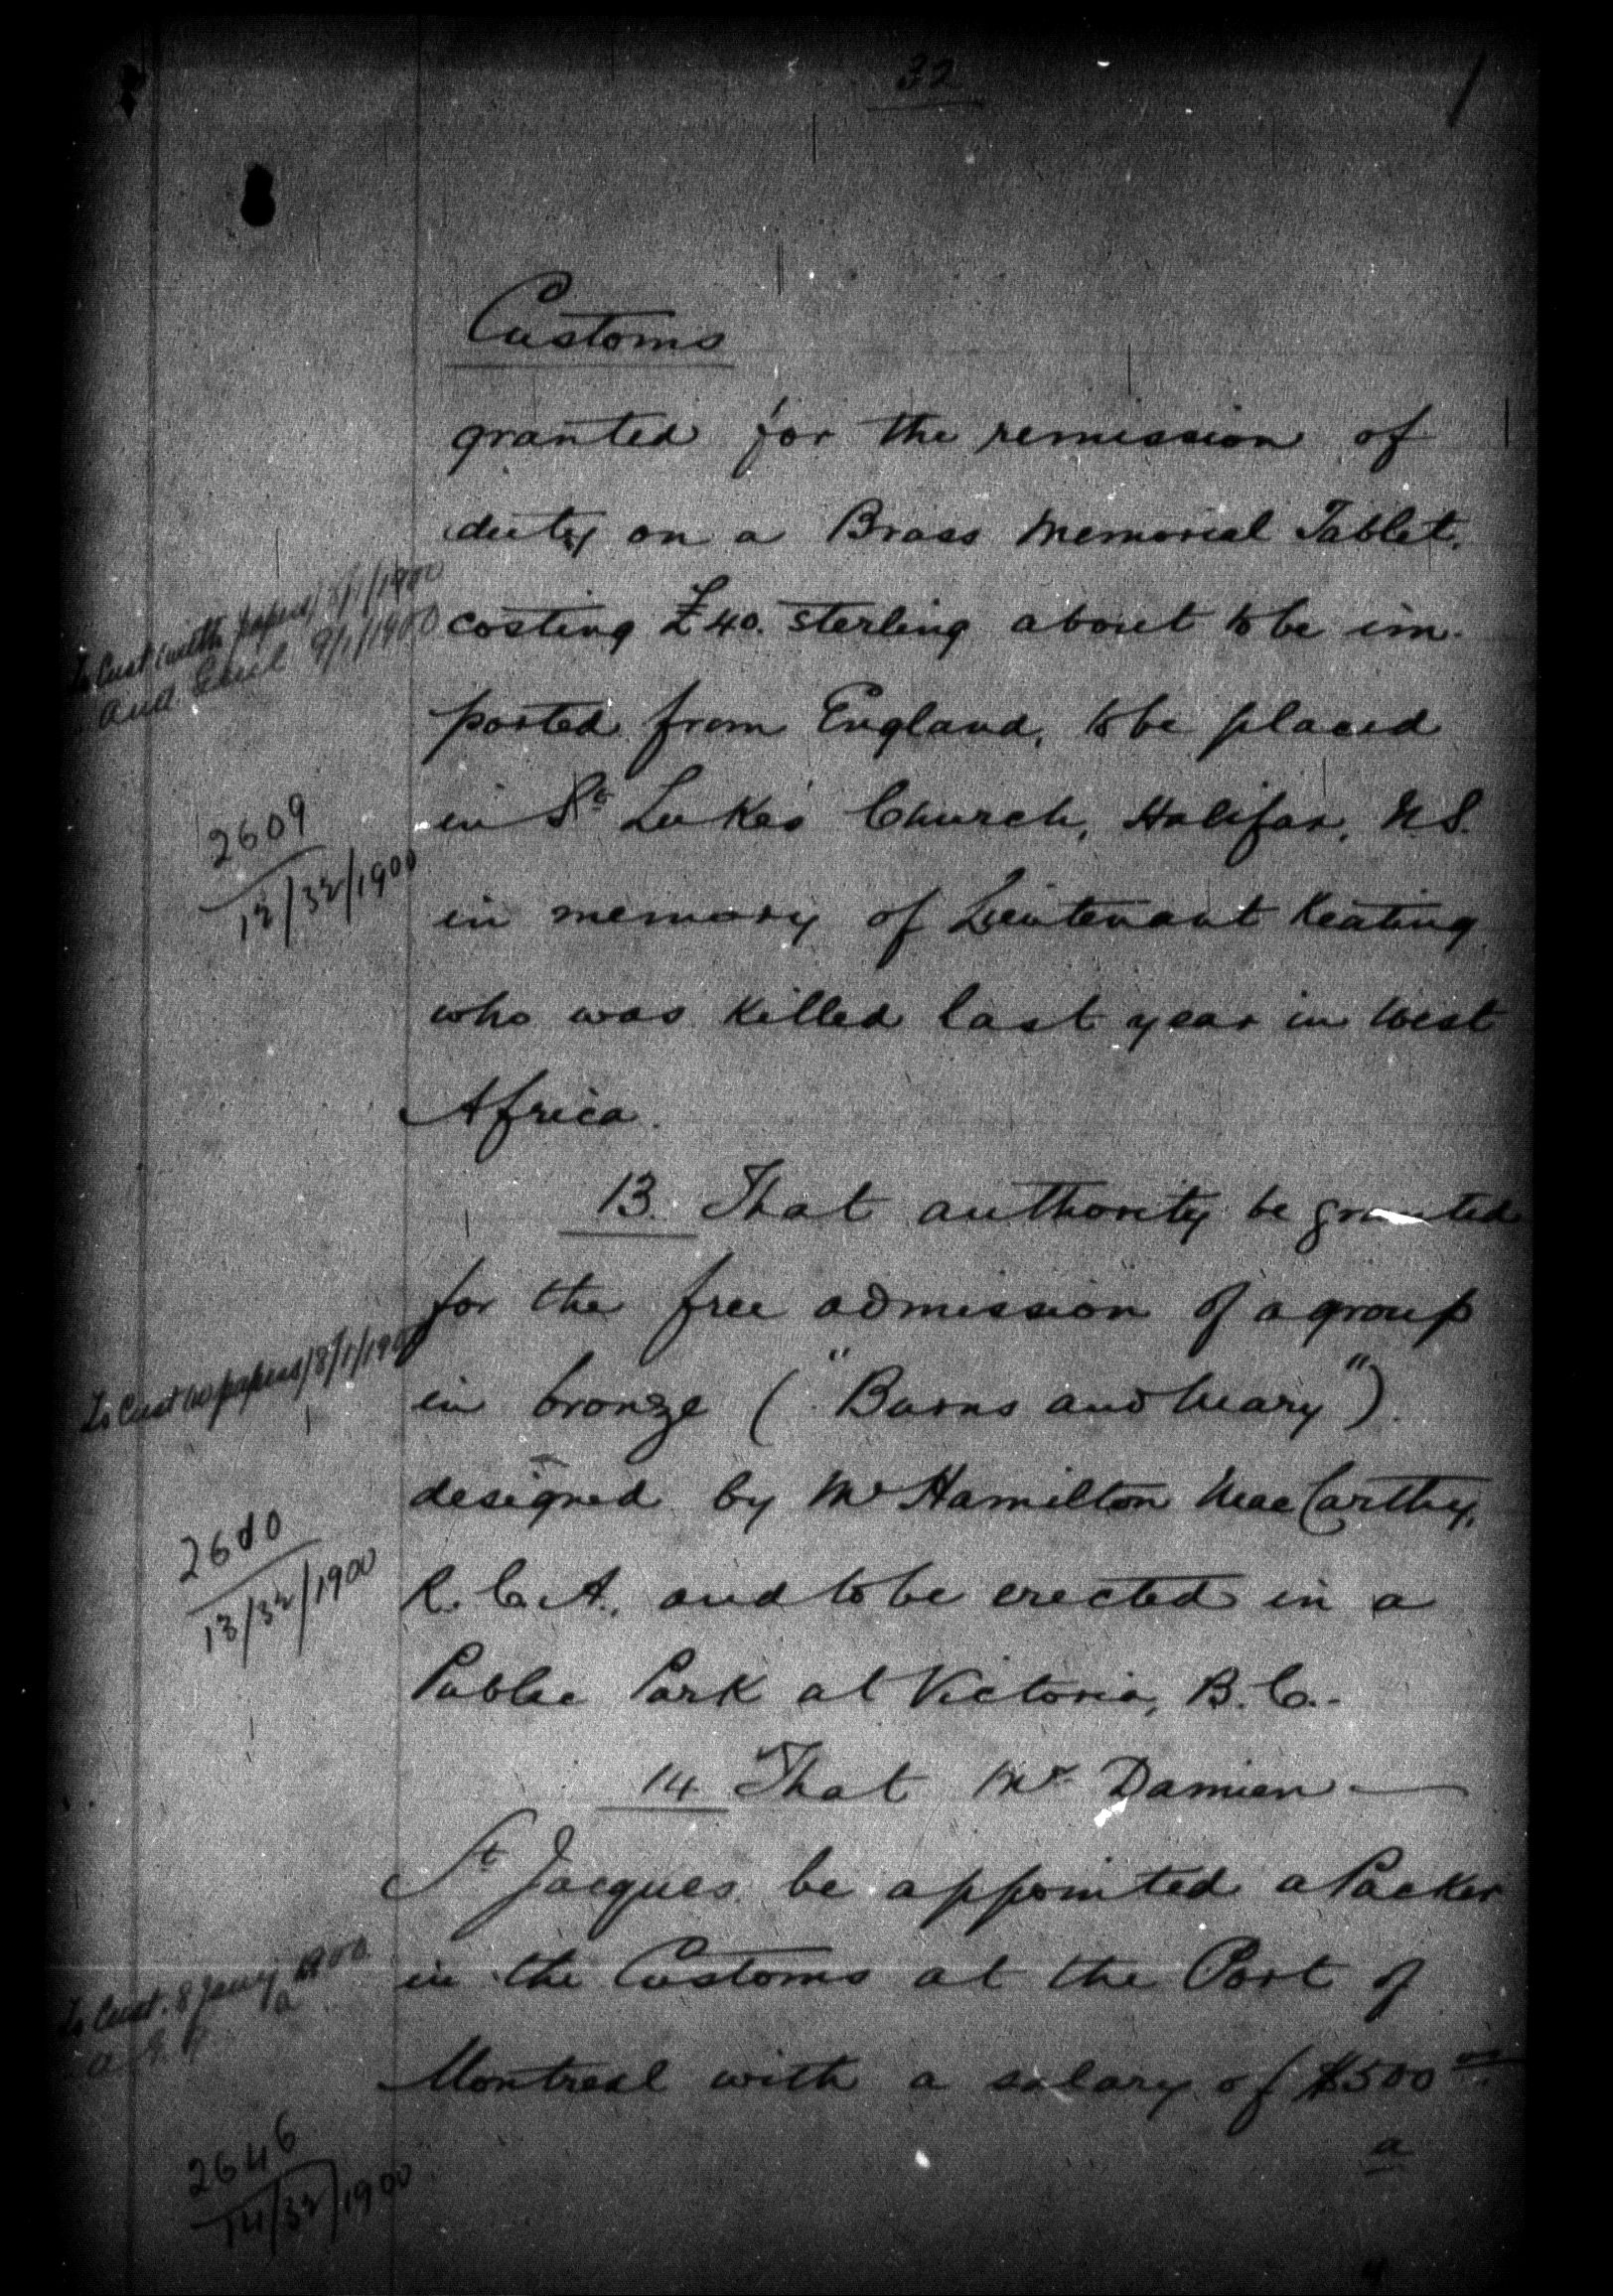 32
Customs
granted for the remission of
duty on a Brass Memorial Tablet,
costing £40. sterling about to be im-
To Cust with papers/8/1/1900
Aud. Genl 9/1/1900
ported from England, to be placed
in St Luke's Church, Halifax, N.S.
2609
12/32/1900
in memory of Lieutenant Keating
who was killed last year in West
Africa.
13. That authority be granted
for the free admission of a group
To Cust w papers/8/1/1900
in bronze ("Burns and Mary")
designed by Mr Hamilton MacCarthy,
2610
13/32/1900
R.C.A., and to be erected in a
Public Park at Victoria, B.C.-
14 That Mr Damien —
St Jacques be appointed a Packer
in the Customs at the Port of
To Cust. 8 Jany 1900
Montreal with a salary of $500 00
a
2646
14/32/1900